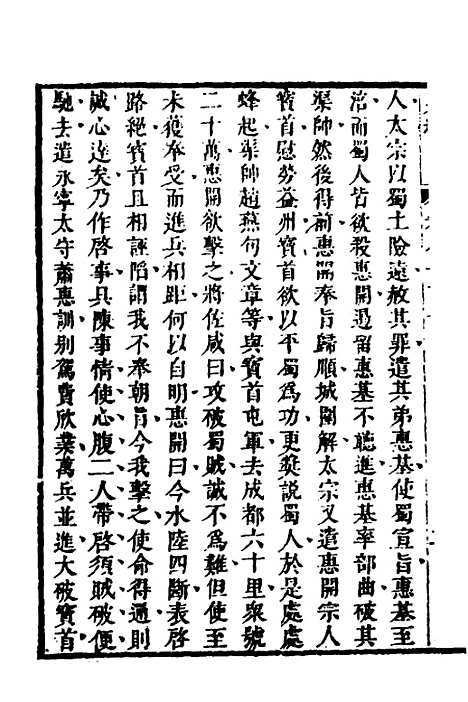 人太宗以蜀土險遠赦其罪遣其弟惠基使蜀宣旨惠基至
涪而蜀人皆欲殺惠開遏留惠基不聽進惠基率部曲破其
渠帥然後得前惠開奉旨歸順城圍解太宗又遣惠開宗人
寶首慰勞益州寶首欲以平蜀爲功更奬説蜀人於是處處
蜂起渠帥趙燕句文章等與寶首屯軍去成都六十里衆號
二十萬惠開欲擊之將佐咸曰攻破蜀賊誠不爲難但使至
未獲奉受而進兵相距何以自明惠開曰今水陸四斷表啓
路絕寶首且相誣陷謂我不奉朝旨今我擊之使命得通則
誠心達矣乃作啓事具陳事情使心腹二人帶啓須賊破便
馳去遣永寧太守蕭惠訓別駕費欣業萬兵並進大破寶首